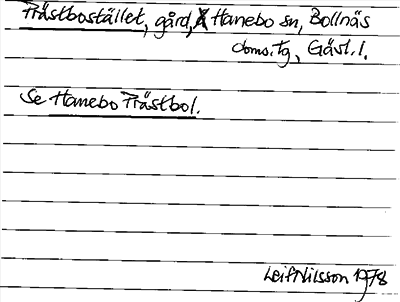 Prästbostället, gård, Hanebo sn, Bollnäs
doms.tg, Gästr.l.
Se Hanebo Prästbol.
Leif Nilsson 1978